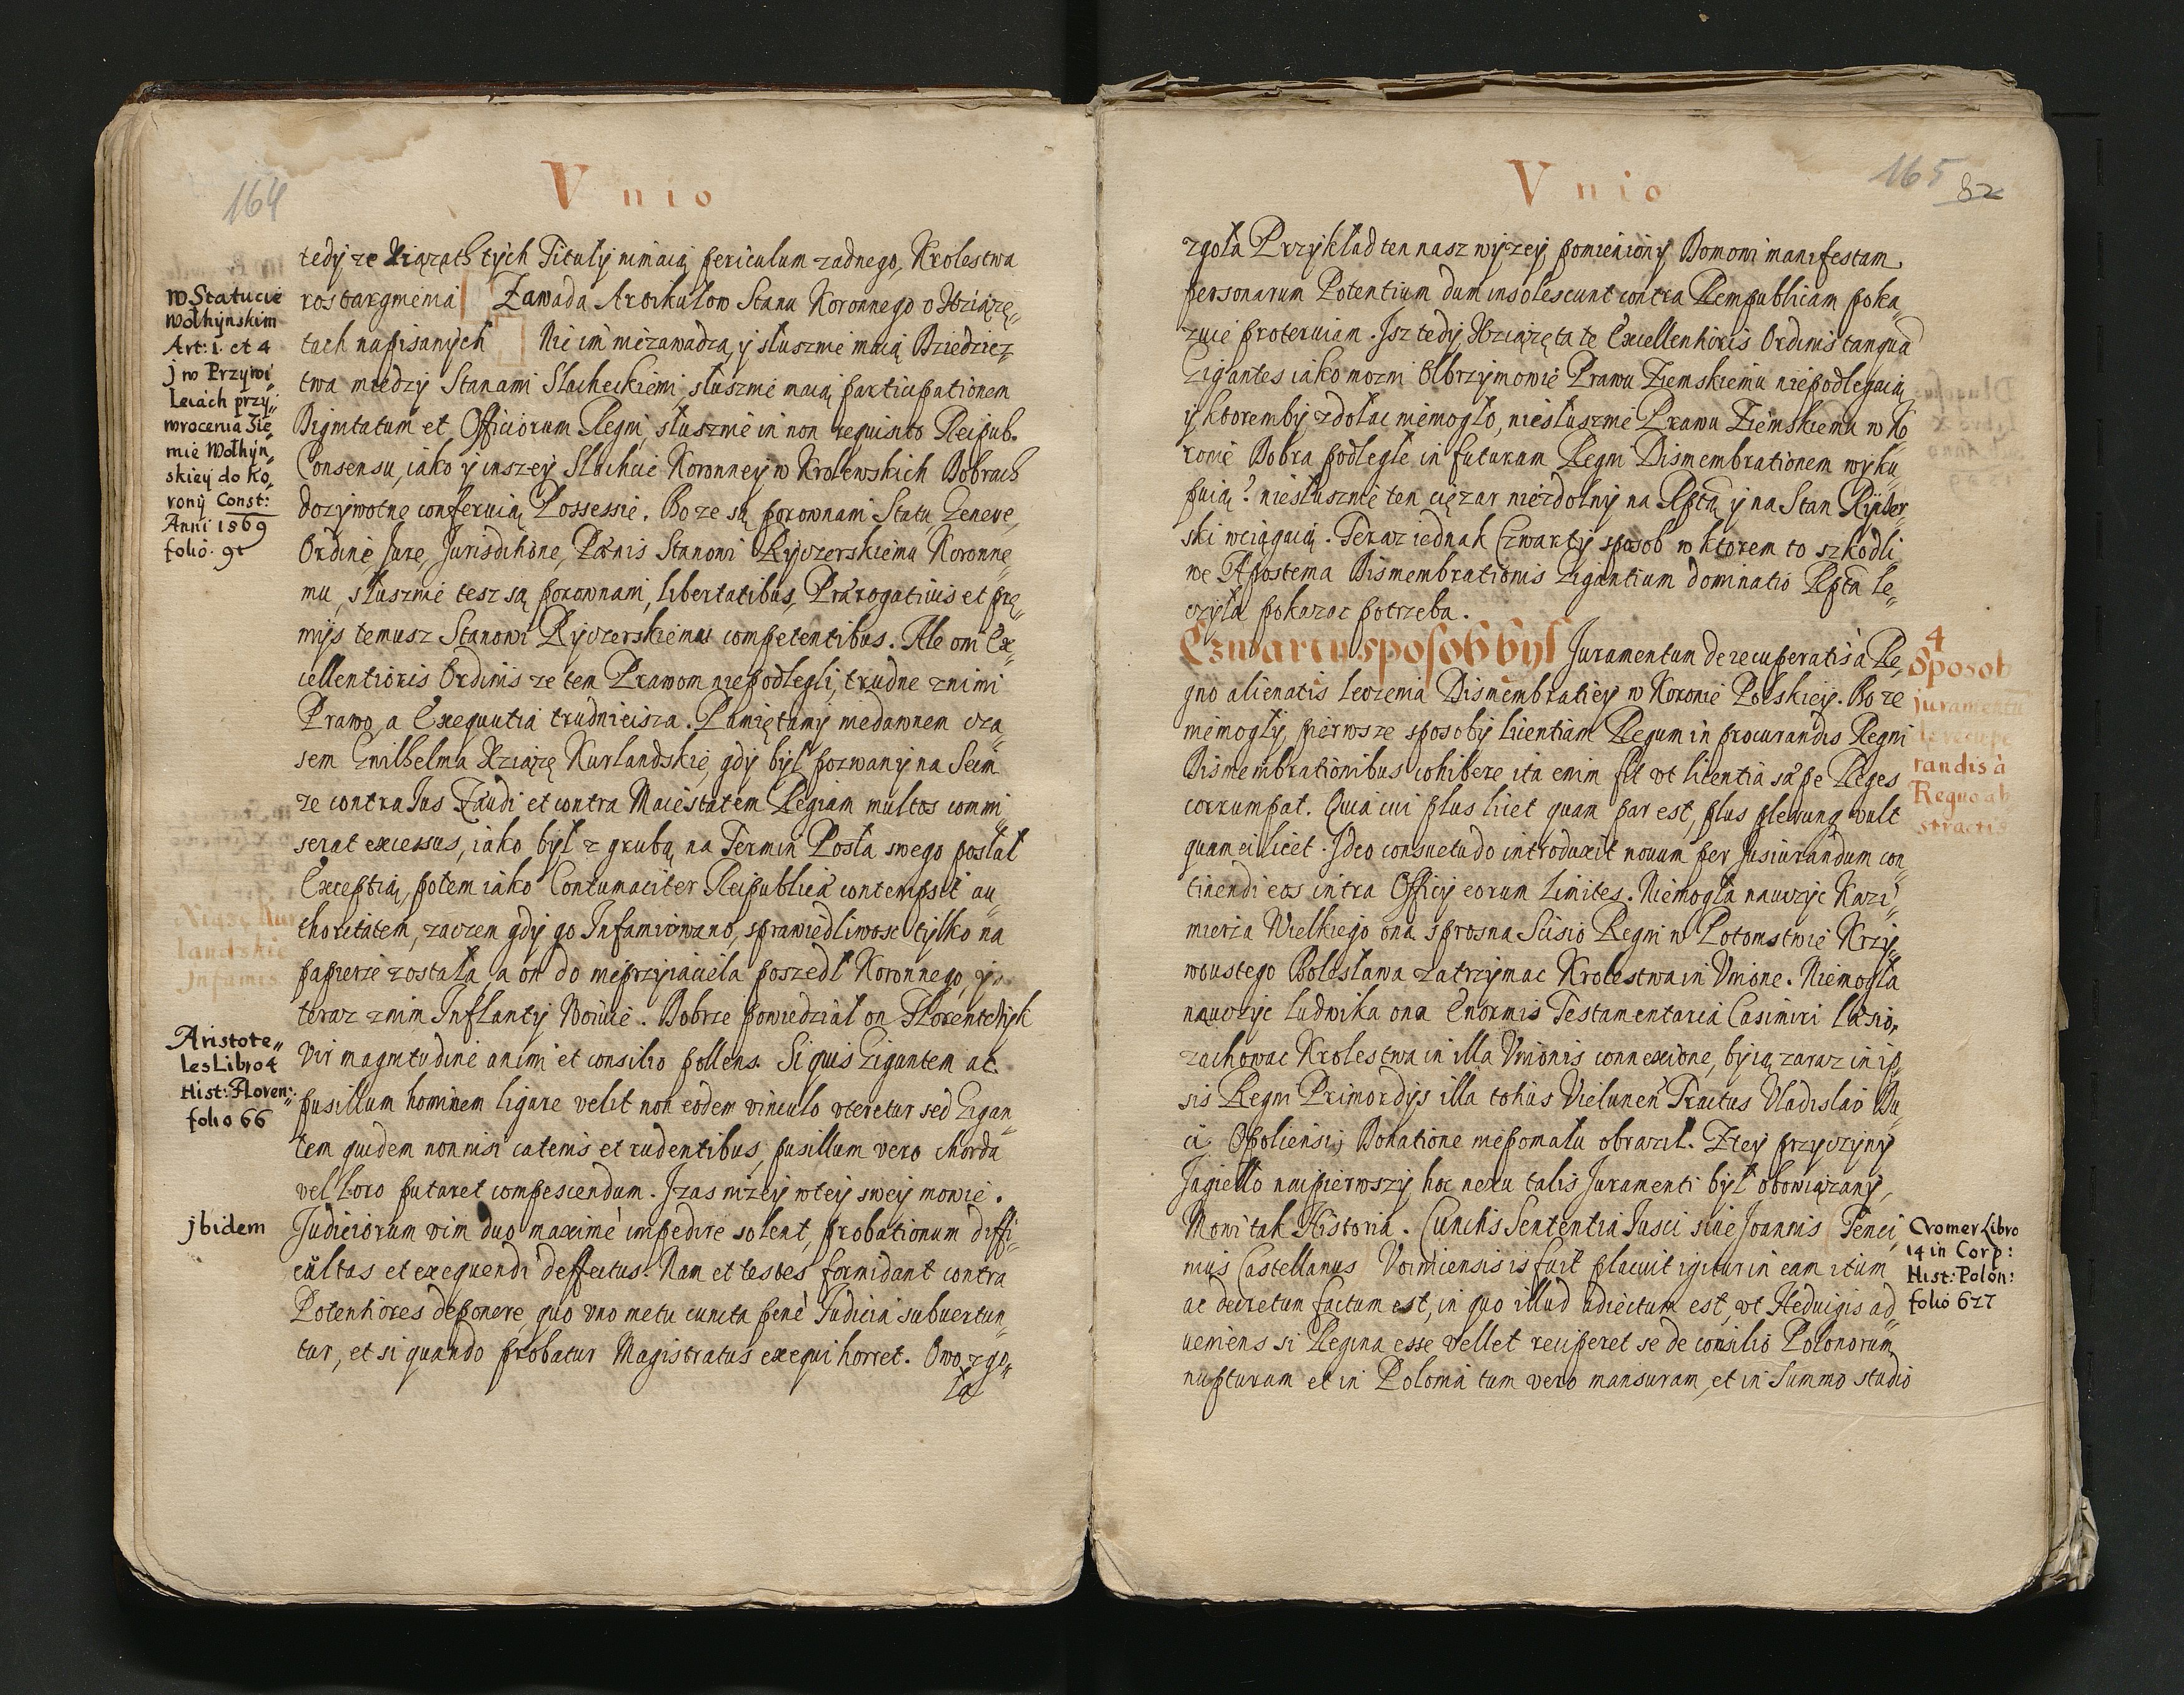 164
Vnio
tedy ze Xiążąth tych Tituly nimaią periculum zadnego, Krolestwa
rostargnienia Zawada Artikułow Stanu Koronnego o Xsiążę„
tach napisanych Nic im niezawadza, y słusznie maią Dziedzicz
twa miedzy Stanami Slacheckiemi, słusznie maią participationem
Dignitatum et Officiorum Regni, słusznie in non requisito Reipub.
Consensu, iako y inszey Slachcie Koronney w Krolewskich Dobrach
dozywotne conferuią Possessie. Bo ze są porownani Statu Genere,
Ordine Jure, Jurisditione, Pœnis Stanowi Ryczerskiemu Koronne„
mu, słusznie tesz są porownani, libertatibus, Prærogatiuis et prę„
mijs temusz Stanowi Ryczerskiemu competentibus. Ale oni Ex„
cellentioris Ordinis ze tem Prawom niepodlegli, trudne znimi
Prawo, a Exequutia trudnieisza. Pamiętamy niedawnem cza„
sem Gwilhelma Xziążę Kurlandskie, gdy był pozwany na Seim
ze contra Jus Fæudi et contra Maiestatem Regiam multos commi„
serat excessus, iako był z grubą na Termin Posła swego posłal
Exceptią, potem iako Contumaciter Reipublicæ contempsit au„
thoritatem, zaczen gdy go Infamiowano, sprawiedliwosc tylko na
papierze została, a on do nieprzyiaciela poszedł Koronnego, y
teraz znim Inflanty Woiuie. Dobrze powiedział on Florentchyk
Vir magnitudine animi et consilio pollens. Si quis Gigantem ac
pusillum hominem ligare velit non eodem vinculo vteretur sed Gigan„
tem quidem nonnisi catenis et rudentibus, pusillum vero chorda
vel Loro putaret compescendum. Izas nizey wtey swey mowie.
Judiciorum vim duo maximè impedire solent, probationum diffi„
cultas et exequendi deffectus. Nam et testes formidant contra
Potentiores deponere, quo vno metu cuncta penè Judicia subuertun„
tur, et si quando probatur Magistratus exequi horret. Owo zgo„
ła
w Statucie
Wołhynskim
Art: 1. et 4
j w Przywi
leiach przy„
wrocenia Zie„
mie Wołhyn„
skiey do Ko„
rony Const:
Anni 1569
folio. 91
Xiążę Kur
landskie
Infamis
Aristote„
les Libro 4
Hist: Floren:
folio 66
jbidem
165
82
Vnio
zgoła Przykład ten nasz wyzey pomieniony Domowi manifestam
personarum Potentium dum insolescunt contra Rempublicam poka„
zuie proteruiam. Isz tedy Xziążęta te Excellentioris Ordinis tanquā
Gigantes iako mozni Olbrzymowie Prawu Ziemskiemu niepodlegaią
y ktoremby zdołac niemogło, niesłusznie Prawu Ziemskiemu w Ko
ronie Dobra podległe in futuram Regni Dismembrationem wyku„
puią? niesłusznie ten cięzar niezdolny na Rptą y na Stan Rycer„
ski wciągaią. Teraz iednak Czwarty sposob w ktorem to szkodli„
we Apostema Dismembrationis Gigantium dominatio Rpta le„
czyła pokazac potrzeba.
Czwarty sposob był Juramentum de recuperatis à Re„
gno alienatis leczenia Dismembratiey w Koronie Polskiey. Bo ze
niemogły pierwsze sposoby licentiam Regum in procurandis Regni
Dismembrationibus cohibere, ita enim fit vt licentia sæpe Reges
corrumpat. Quia cui plus licet quam par est, plus plerunq vult
quam ei licet. Ideo consuetudo introduxit nouum per Jusiurandum con„
tinendi eos intra Officij eorum Limites. Niemogła nauczyc Kazi„
mierza Wielkiego ona sprosna Scisio Regni w Potomstwie Krzy„
woustego Bolesława zatrzymac Krolestwa in Vnione. Niemogła
nauczyc Ludwika ona Enormis Testamentaria Casimiri Læsio,
zachowac Krolestwa in illa Vnionis connexione, by ią zaraz in ip„
sis Regni Primordijs illa totius Vielunen Tractus Vladislao Du„
ci Opoliensij Donatione niepomału obraził. Ztey przyczyny
Jagiełło naipierwszy hoc nexu talis Juramenti był obowiązany,
Mowi tak Historia. Cunctis Sententia Jusci siue Joannis Tenci„
nius Castellanus Voiniciensis is fuit placuit igitur in eam itum
ac decretum factum est, in quo illud adiectum est, vt Heduigis ad„
ueniens si Regina esse vellet reciperet se de consilio Polonorum
nupturam et in Polonia tum vero mansuram, et in summo studio
4
Sposob
juramentu
de recupe
randis à
Regno ab
stractis
Cromer Libro
14 in Corp:
Hist: Polon:
folio 627